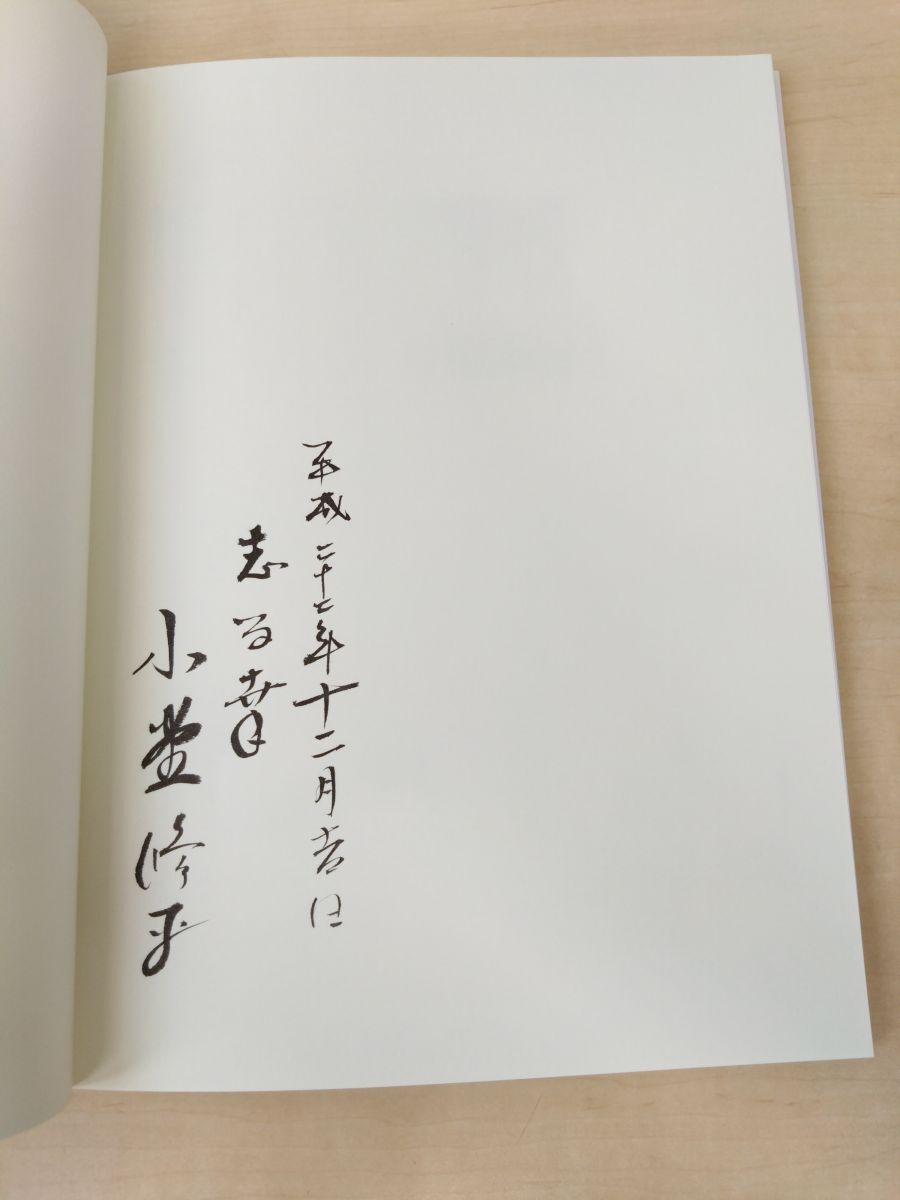 平成二十七年十二月吉日
志
小堂修平